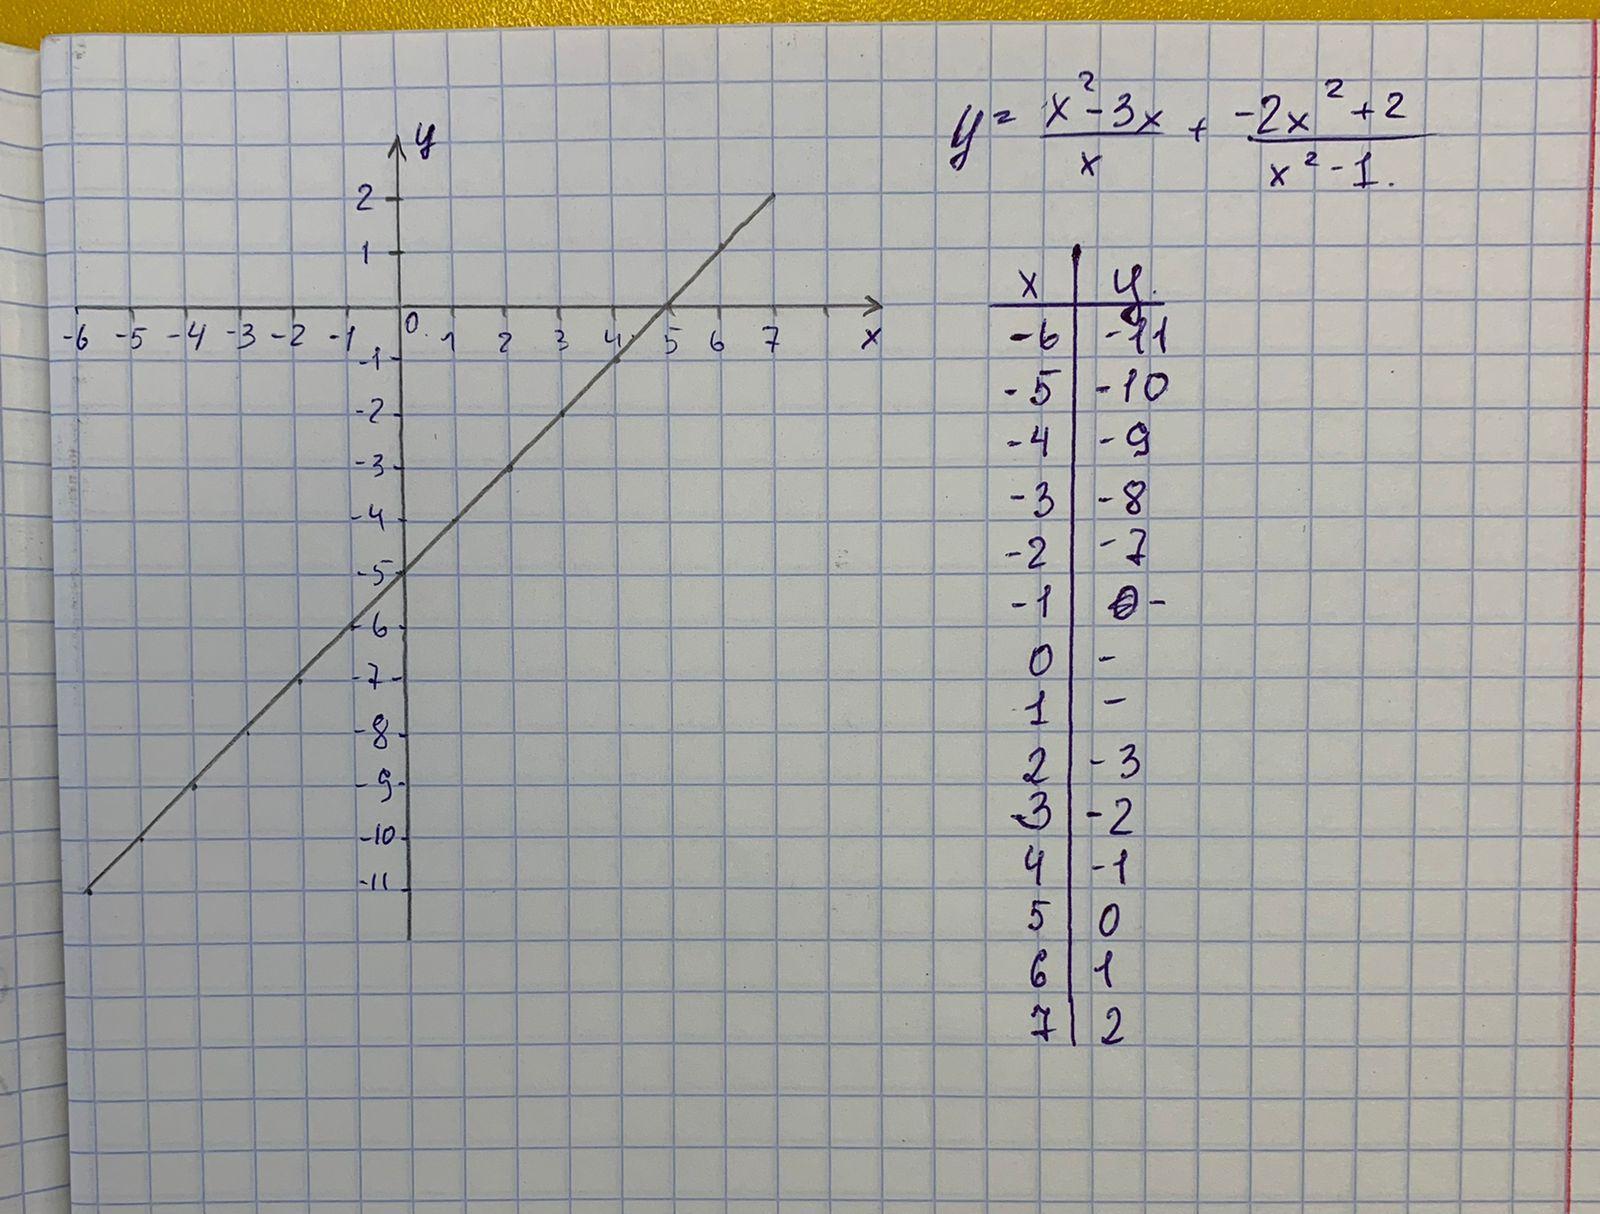 y
2
1
-6 -5 -4 -3 -2 -1 0. 1 2 3 4 5 6 7 x
-1
-2
-3
-4
-5
-6
-7
-8
-9
-10
-11
y = (x² - 3x)/x + (-2x² + 2)/(x² - 1).
x y.
-6 -11
-5 -10
-4 -9
-3 -8
-2 -7
-1 -
0 -
1 -
2 -3
3 -2
4 -1
5 0
6 1
7 2